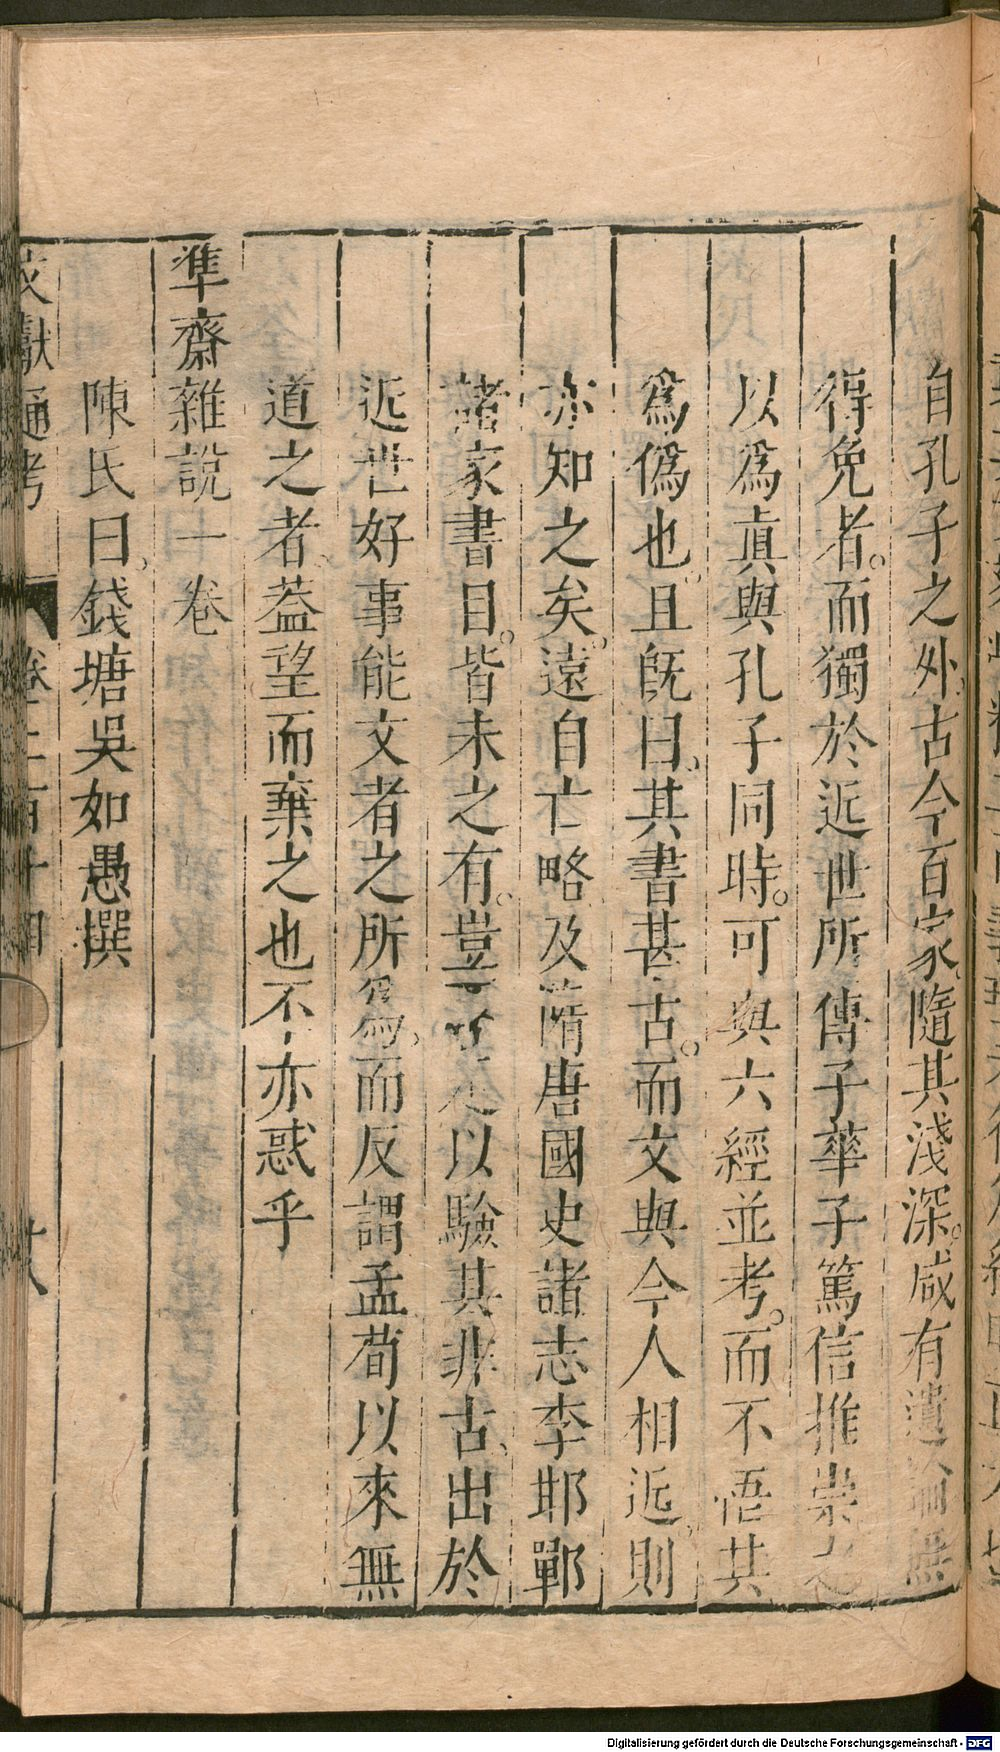 自孔子之外古今百家隨其淺深咸有遺論無
得免者而獨於近世所傳子華子篤信推崇之
以爲真與孔子同時可與六經並考而不悟其
爲僞也且旣曰其書甚古而文與今人相近則
亦知之矣遠自亡略及隋唐國史諸志李邯鄲
諸家書目皆未之有豈不足以驗其非古出於
近世好事能文者之所爲而反謂孟荀以來無
道之者葢望而棄之也不亦惑乎
準齋雜說一卷
陳氏曰錢塘吳如愚撰
文獻通考 卷二百十四 十八
Digitalisierung gefördert durch die Deutsche Forschungsgemeinschaft - DFG